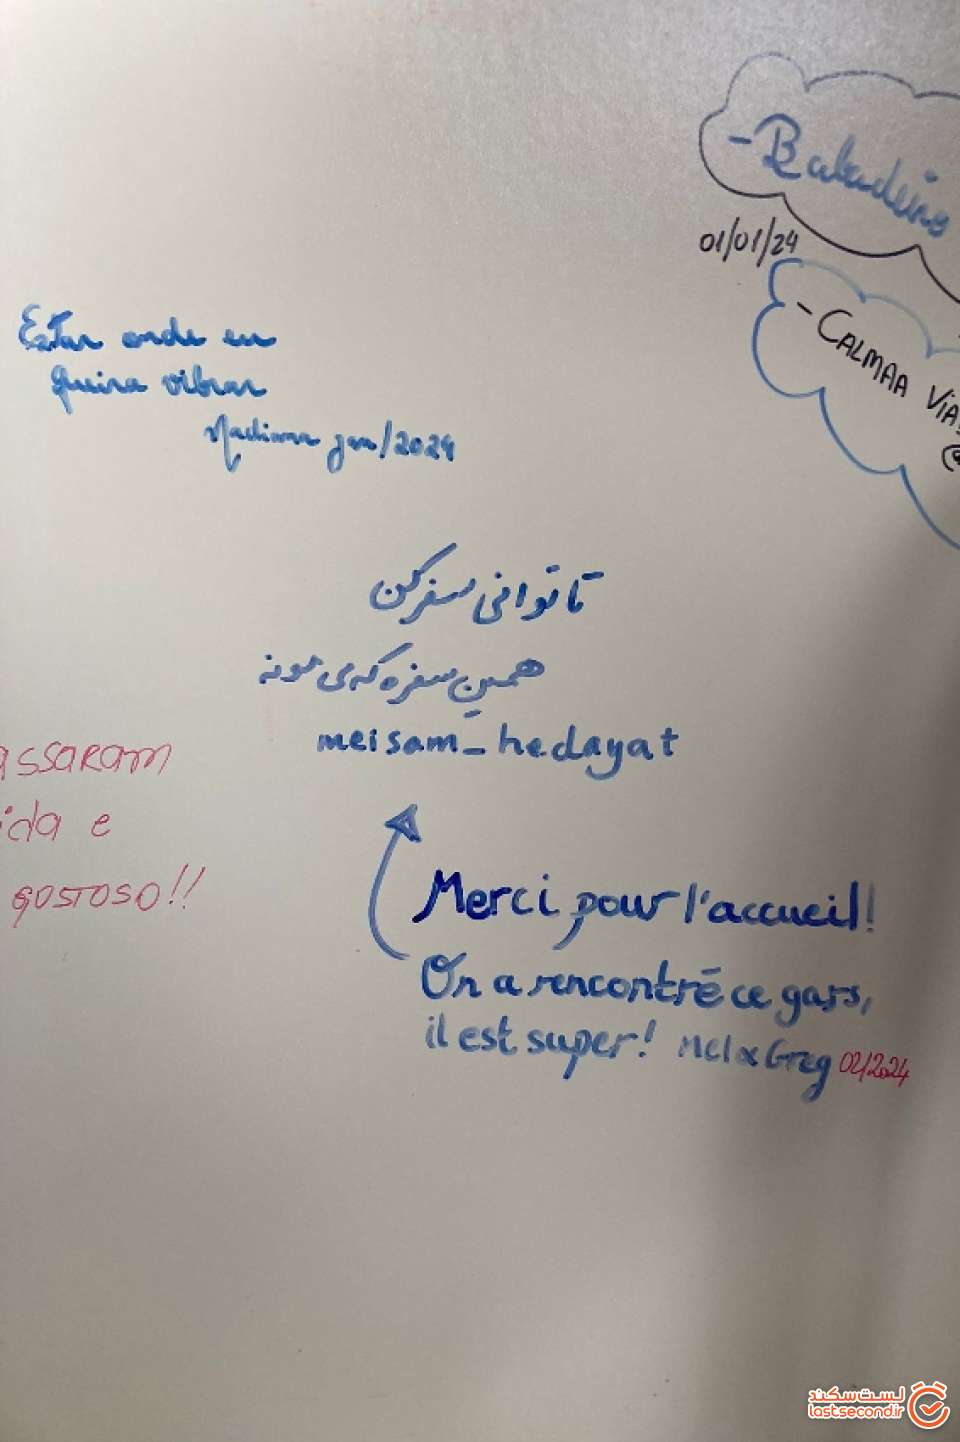 - Baladeiros
01/01/24
- CALMAA VIA
@
Estar onde eu
queira vibrar
jan/2024
تا توانی سفر کن
همین سفره که می مونه
meisam_hedayat
assaram
ida e
gostoso!!
Merci pour l'accueil!
On a rencontré ce gars,
il est super! Mel & Greg 02/2024
لست‌سکند
lastsecond.ir